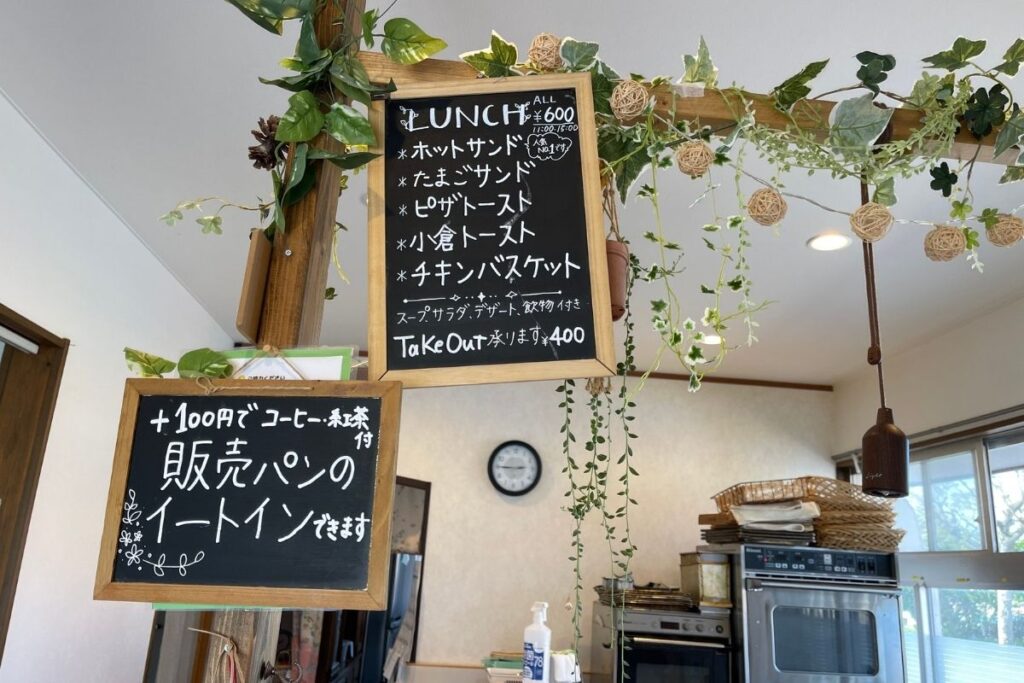 LUNCH ALL ¥600
11:00-15:00
＊ホットサンド 人気No.1です
＊たまごサンド
＊ピザトースト
＊小倉トースト
＊チキンバスケット
スープ、サラダ、デザート、飲物 付き
TakeOut 承ります ¥400
＋100円で コーヒー・紅茶付
販売パンの
イートインできます
Light
78